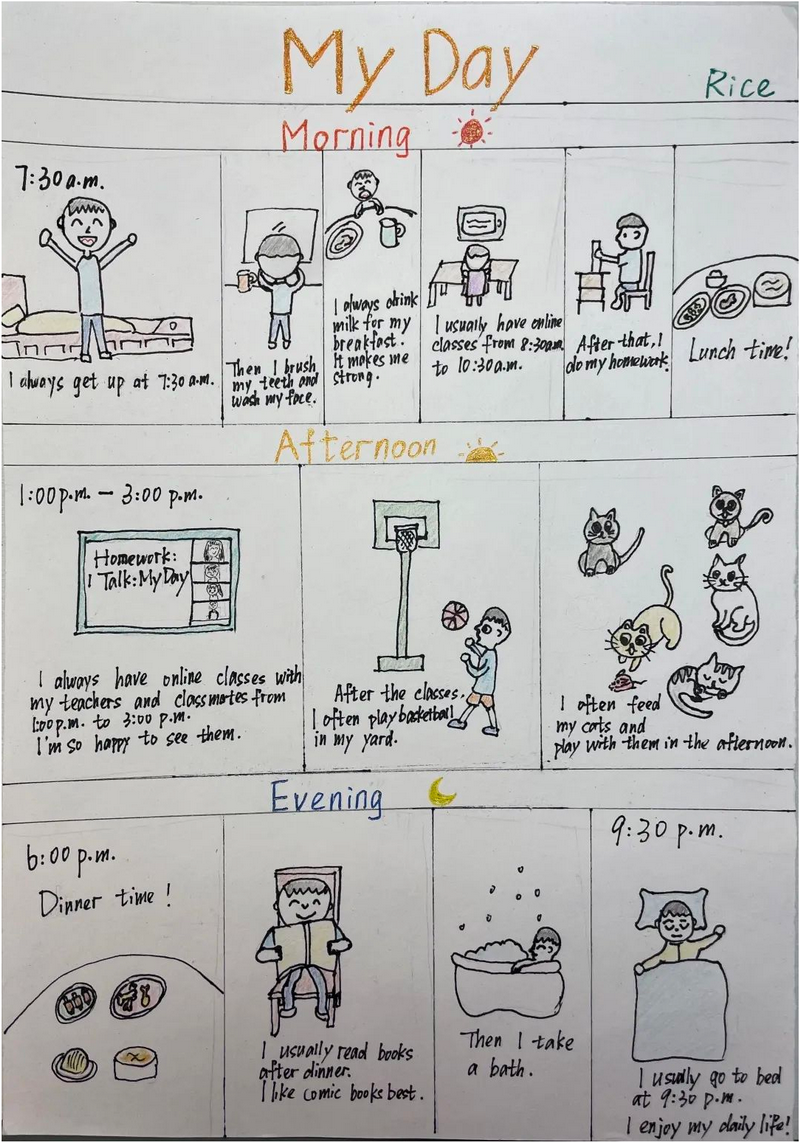 My Day
Rice
Morning
7:30 a.m.
I always get up at 7:30 a.m.
Then I brush
my teeth and
wash my face.
I always drink
milk for my
breakfast.
It makes me
strong.
I usually have online
classes from 8:30a.m.
to 10:30a.m.
After that, I
do my homework.
Lunch time!
Afternoon
1:00p.m. — 3:00 p.m.
Homework:
1 Talk: My Day
I always have online classes with
my teachers and classmates from
1:00p.m. to 3:00 p.m.
I'm so happy to see them.
After the classes.
I often play basketball
in my yard.
I often feed
my cats and
play with them in the afternoon.
Evening
6:00 p.m.
Dinner time!
I usually read books
after dinner.
I like comic books best.
Then I take
a bath.
9:30 p.m.
I usually go to bed
at 9:30 p.m.
I enjoy my daily life!